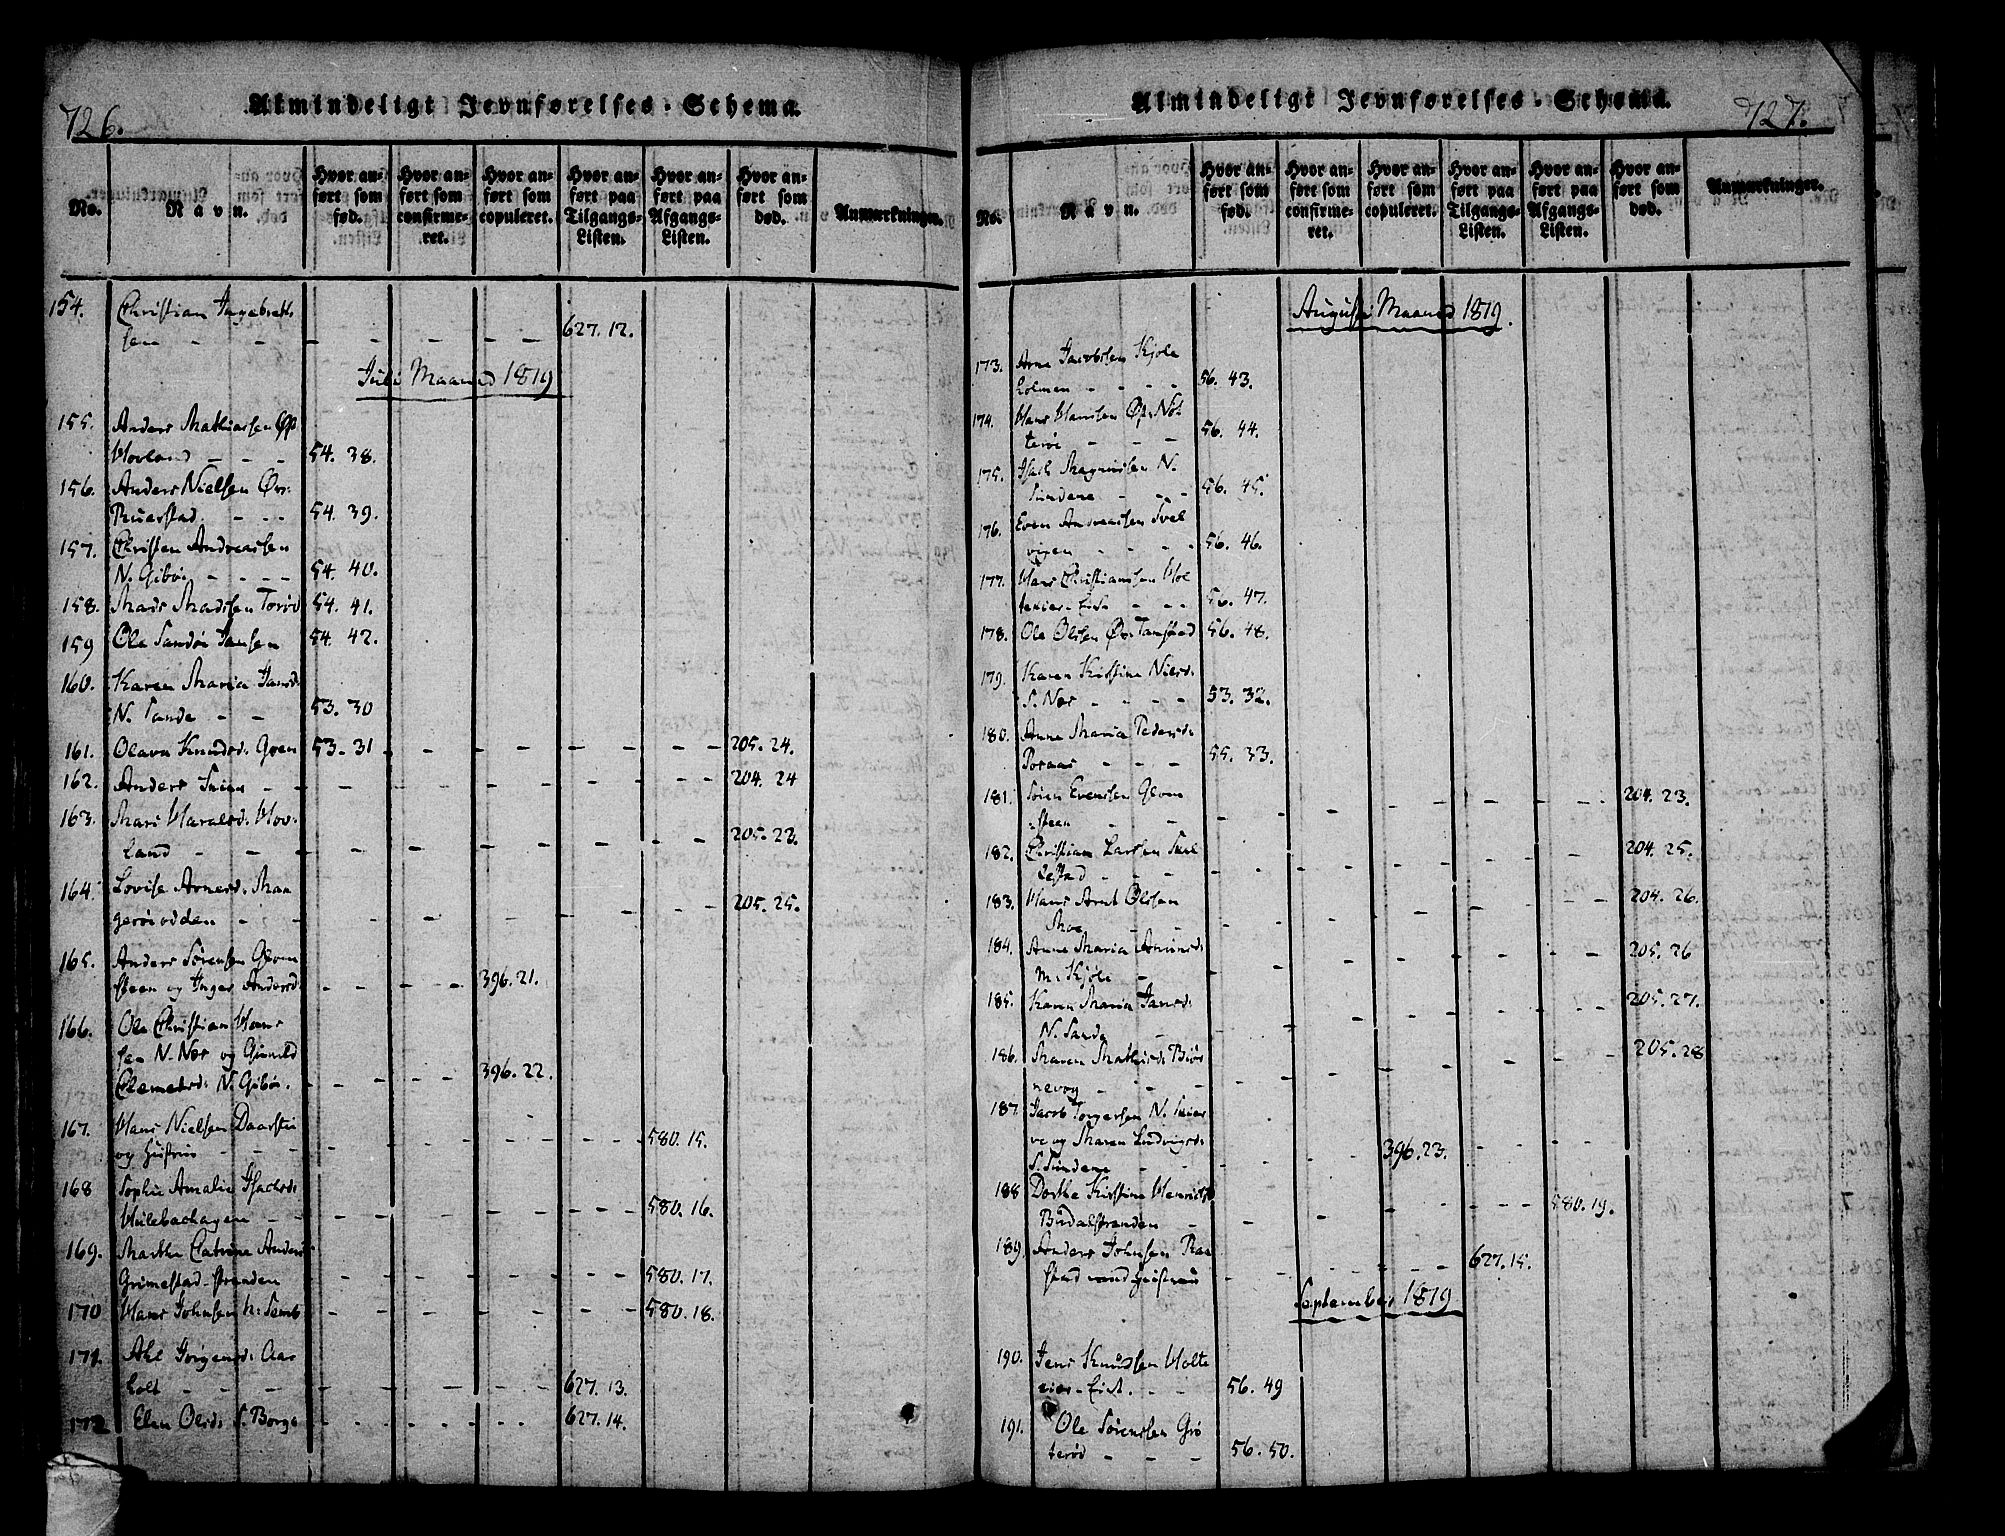 726.
Almindeligt Jevnførelses-Schema.
No.
Navn.
Hvor anført som fød.
Hvor anført som confirmeret.
Hvor anført som copuleret.
Hvor anført paa Tilgangs-Listen.
Hvor anført paa Afgangs-Listen.
Hvor anført som død.
Anmærkninger.
154. Christian Ingebrets
sen - - - - - - 627. 12.
Juli Maaned 1819
155. Anders Mathiassen Øv.
Hovland - - - 54. 38.
156. Anders Nielsen Øv.
- - - 54. 39.
157. Christen Andreassen
N. Gibøe - - - - 54. 40.
158. Mads Madssen Torød 54. 41.
159 Ole Sandøe Jansen 54. 42.
160. Karen Maria Jansd:
N. Sande - - 53. 30
161. Olava Knudsd: Gren 53. 31 - - - - - 205. 24.
162. Anders - - - - - - - 204. 24
163. Mari Haralsd: Hov-
land - - - - - - - - 205. 23.
164. Lovise Arnesd: Maa
gerøeodden - - - - - - - 205. 25.
165. Anders Sørensen Glom
steen og Inger Andersd: - - - - 396. 21.
166. Ole Christian Hans
sen N. Nøe og Gunild
Clemetsd: N. Gibøe. - - - - 396. 22.
167. Hans Nielsen
og Hustrue - - - - - - - 580. 15.
168 Sophie Amalie Isachsd:
Hulebachagen - - - - - - - 580. 16.
169. Marthe Catrine Anders
Grimestad-stranden - - - - - - 580. 17.
170 Hans Johnsen - - - - - - 580. 18.
171. Jørgensd: Aas
holt - - - - - - 627. 13.
172 Elen Olsd: S. Borge - - - - 627. 14.
727.
Almindeligt Jevnførelses-Schema.
No.
Navn.
Hvor anført som fød.
Hvor anført som confirmeret.
Hvor anført som copuleret.
Hvor anført paa Tilgangs-Listen.
Hvor anført paa Afgangs-Listen.
Hvor anført som død.
Anmærkninger.
August Maaned 1819.
173. Arne Jacobsen Kjøle
holmen - - - - 56. 43.
174. Hans Hanssen Øv. Nøt
terøe - - - 56. 44.
175. Isach Magnussen N.
Sundene - - - 56. 45.
176. Even Andreassen Svel
vigen - - - - 56. 46.
177. Hans Christiansen Hol
- - - 56. 47.
178. Ole Olssen Øv. Tanstad 56. 48.
179. Karen Kirstine Nielsd:
S. Nøe - - - - 53. 32.
180. Anne Maria Pedersd:
- - - 55. 33.
181. Søren Evensen Glom
steen - - - - - - - 204. 23.
182. Christian Larssen
- - - - - - - 204. 25.
183. Hans Arnt Olssen
Moe - - - - - - - 204. 26.
184. Anne Maria Amunds:
M. Kjøle - - - - - - - 205. 26
185. Karen Maria Jansd:
N. Sande - - - - - - - 205. 27.
186. Maren Mathisd: Biør
nevog - - - - - - - 205. 28
187. Jacob Torgersen N.
og Maren Ludvigsd:
S. Sundene - - - 396. 23. - - -
188 Dorthe Kirstine Henrichs
Budalstranden - - - - - - 580. 19.
189. Anders Johnsen Ra
stad med Hustrue - - - - 627. 15.
September 1819
190. Jens Knudsen Holte
- - 56. 49
191. Ole Sørenssen Grø
terød - - - 56. 50.